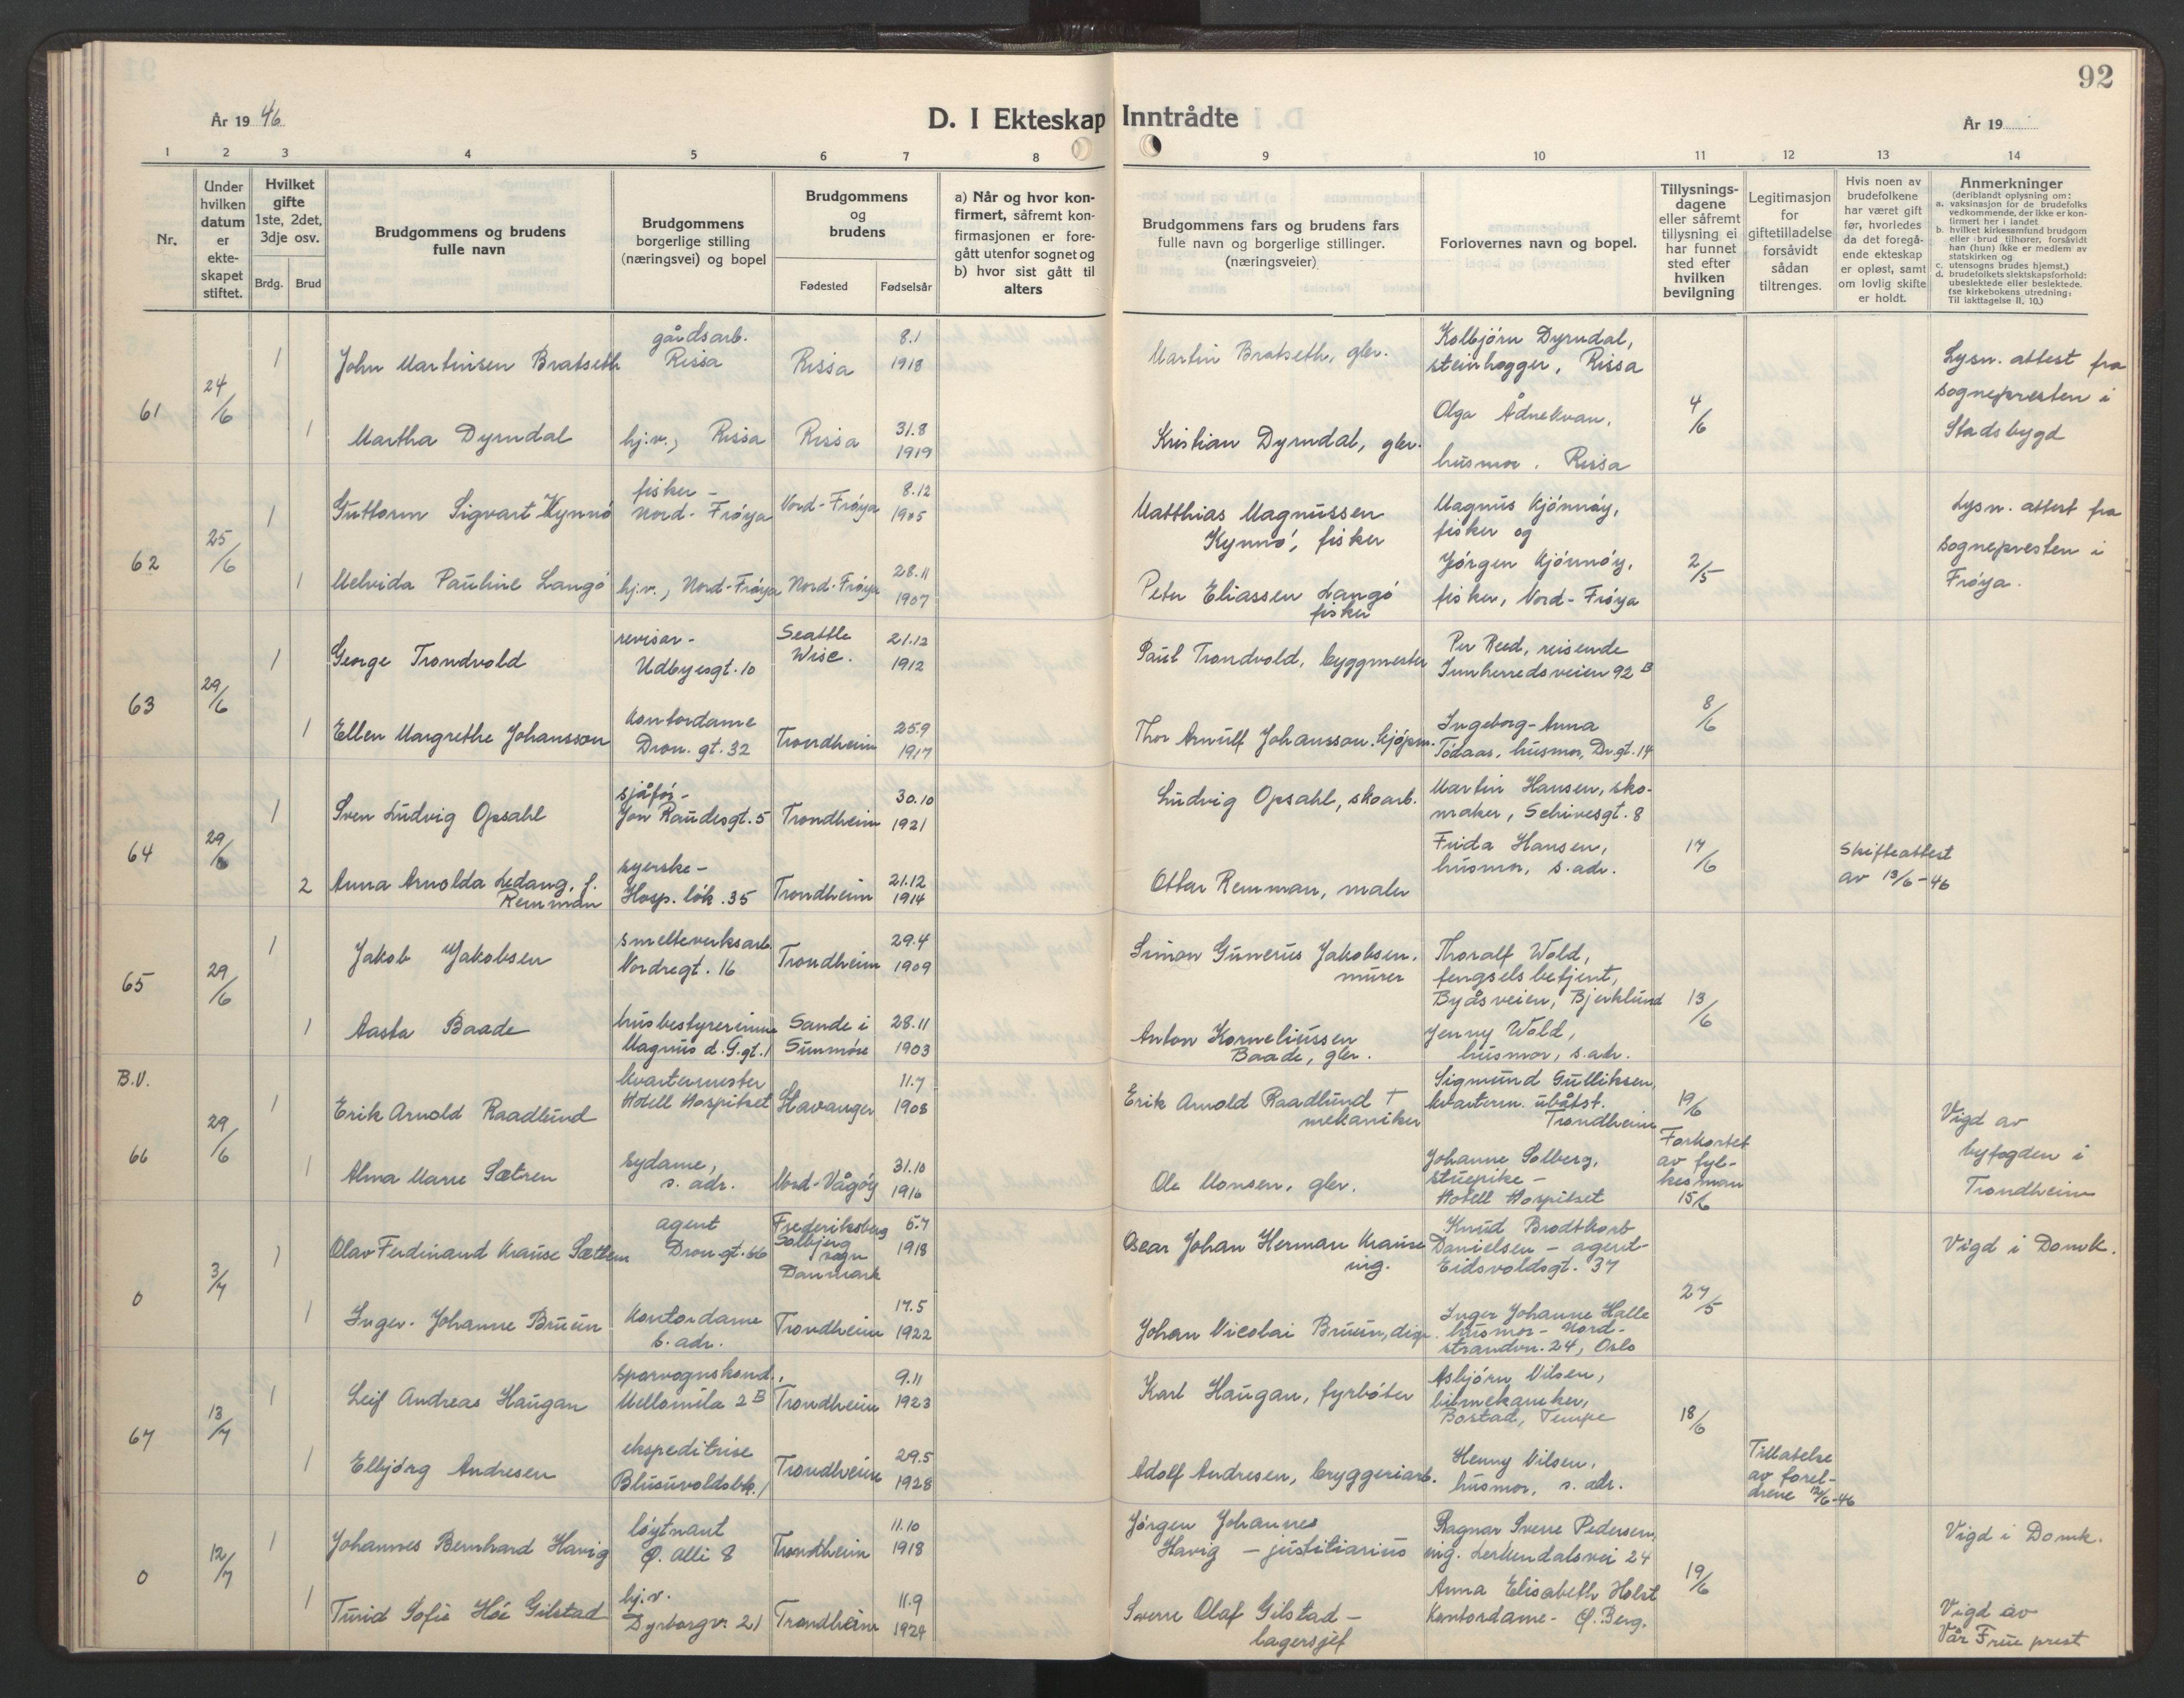 92
År 19 46
D. I Ekteskap Inntrådte
År 19
1 2 3 4 5 6 7 8 9 10 11 12 13 14
Nr.
Under
hvilken
datum
er
ekte-
skapet
stiftet.
Hvilket
gifte
1ste, 2det,
3dje osv.
Brdg. Brud
Brudgommens og brudens
fulle navn
Brudgommens
borgerlige stilling
(næringsvei) og bopel
Brudgommens
og
brudens
Fødested Fødselsår
a) Når og hvor kon-
firmert, såfremt kon-
firmasjonen er fore-
gått utenfor sognet og
b) hvor sist gått til
alters
Brudgommens fars og brudens fars
fulle navn og borgerlige stillinger.
(næringsveier)
Forlovernes navn og bopel.
Tillysnings-
dagene
eller såfremt
tillysning ei
har funnet
sted efter
hvilken
bevilgning
Legitimasjon
for
giftetilladelse
forsåvidt
sådan
tiltrenges.
Hvis noen av
brudefolkene
har været gift
før, hvorledes
da det foregå-
ende ekteskap
er opløst, samt
om lovlig skifte
er holdt.
Anmerkninger
(deriblandt oplysning om:
a. vaksinasjon for de brudefolks
vedkommende, der ikke er kon-
firmert her i landet
b. hvilket kirkesamfund brudgom
eller brud tilhører, forsåvidt
han (hun) ikke er medlem av
statskirken og
c. utensogns brudes hjemst.)
d. brudefolkets slektskapsforhold:
ubeslektede eller beslektede.
(se kirkebokens utredning:
Til iakttagelse II. 10.)
61
24/6
1
John Martinsen Bratseth
gårdsarb.
Rissa
Rissa
8.1
1918
Martin Bratseth, gbr.
Kolbjørn Dyrndal,
steinhogger, Rissa
4/6
Lysn. attest fra
sognepresten i
Stadsbygd
1
Martha Dyrndal
hj.v., Rissa
Rissa
31.8
1919
Kristian Dyrndal, gbr.
Olga Ådnekvam,
husmor, Rissa
62
25/6
1
Guttorm Sigvart Kynnø
fisker -
Nord-Frøya
Nord-Frøya
8.12
1905
Matthias Magnussen
Kynnø, fisker
Magnus Kjønnøy,
fisker og
2/5
Lysn. attest fra
sognepresten i
Frøya.
1
Melvida Pauline Langø
hj.v., Nord-Frøya
Nord-Frøya
28.11
1907
Peter Eliassen Langø
fisker
Jørgen Kjønnøy,
fisker, Nord-Frøya
63
29/6
1
George Trondvold
revisor -
Udbyesgt. 10
Seattle
Wisc.
21.12
1912
Paul Trondvold, byggmester
Per Reed, reisende
Innherredsveien 92 B
8/6
1
Ellen Margrethe Johansson
kontordame
Dron. gt. 32
Trondheim
25.9
1917
Thor Arnulf Johansson, kjøpm.
Ingeborg-Anna
Tødaas, husmor, Dr.gt. 14
64
29/6
1
Sven Ludvig Opsahl
sjåfør -
Jon Raudesgt. 5
Trondheim
30.10
1921
Ludvig Opsahl, skoarb.
Martin Hansen, sko-
maker, Schivesgt. 8
17/6
Skifteattest
av 13/6-46
2
Anna Arnolda Ledang, f.
Remman
syerske -
Hosp. løk. 35
Trondheim
21.12
1914
Ottar Remman, maler
Frida Hansen,
husmor, s. adr.
65
29/6
1
Jakob Jakobsen
smelteverksarb.
Nordregt. 16
Trondheim
29.4
1909
Simon Gunerius Jakobsen,
murer
Thoralf Wold,
fengselsbetjent,
Byåsveien, Bjerklund
13/6
1
Aasta Baade
husbestyrerinne
Magnus d. G.gt. 1
Sande i
Sunnmøre
28.11
1903
Anton Korneliussen
Baade, gbr.
Jenny Wold,
husmor, s. adr.
B.V.
66
29/6
1
Erik Arnold Raadlund
kvartermester
Hotell Hospitset
Stavanger
11.7
1908
Erik Arnold Raadlund †
mekaniker
Sigmund Gulliksen,
kvarterm. ubåtst.
Trondheim
19/6
Forkortet
av fyl-
kesmann
15/6
Vigd av
byfogden i
Trondheim
1
Alma Marie Sætren
sydame,
s. adr.
Nord-Vågøy
31.10
1916
Ole Monsen, gbr.
Johanne Solberg,
stuepike -
Hotell Hospitset
0
3/7
1
Olav Ferdinand Krause Sættem
agent
Dron. gt. 66
Frederiksberg
Solbjerg
sogn
Danmark
5.7
1918
Oscar Johan Herman Krause
ing.
Knud Brodtkorb
Danielsen - agent
Eidsvoldsgt. 37
27/5
Vigd i Domk.
1
Inger-Johanne Bruun
kontordame
s. adr.
Trondheim
17.5
1922
Johan Nicolai Bruun, disp.
Inger Johanne Halle
husmor - Nord-
strandvn. 24, Oslo
67
13/7
1
Leif Andreas Haugan
sporvognskond.,
Mellomila 2 B
Trondheim
9.11
1923
Karl Haugan, fyrbøter
Asbjørn Nilsen,
bilmekaniker,
Bostad, Tempe
18/6
1
Elbjørg Andresen
ekspeditrise
Blusuvoldsbk. 1
Trondheim
29.5
1928
Adolf Andresen, bryggeriarb.
Henny Nilsen,
husmor, s. adr.
Tillatelse
av forel-
drene 12/6-46
0
12/7
1
Johannes Bernhard Havig
løytnant
Ø. Alle 8
Trondheim
11.10
1918
Jørgen Johannes
Havig - justitiarius
Ragnar Sverre Pedersen,
ing. Lerkendalsvei 24
19/6
Vigd i Domk.
1
Turid Sofie Høe Gilstad
hj.v.
Dyrborgv. 21
Trondheim
11.9
1924
Sverre Olaf Gilstad -
lagersjef
Anna Elisabeth Holst
Kontordame - Ø. Berg.
Vigd av
Vår Frue prest